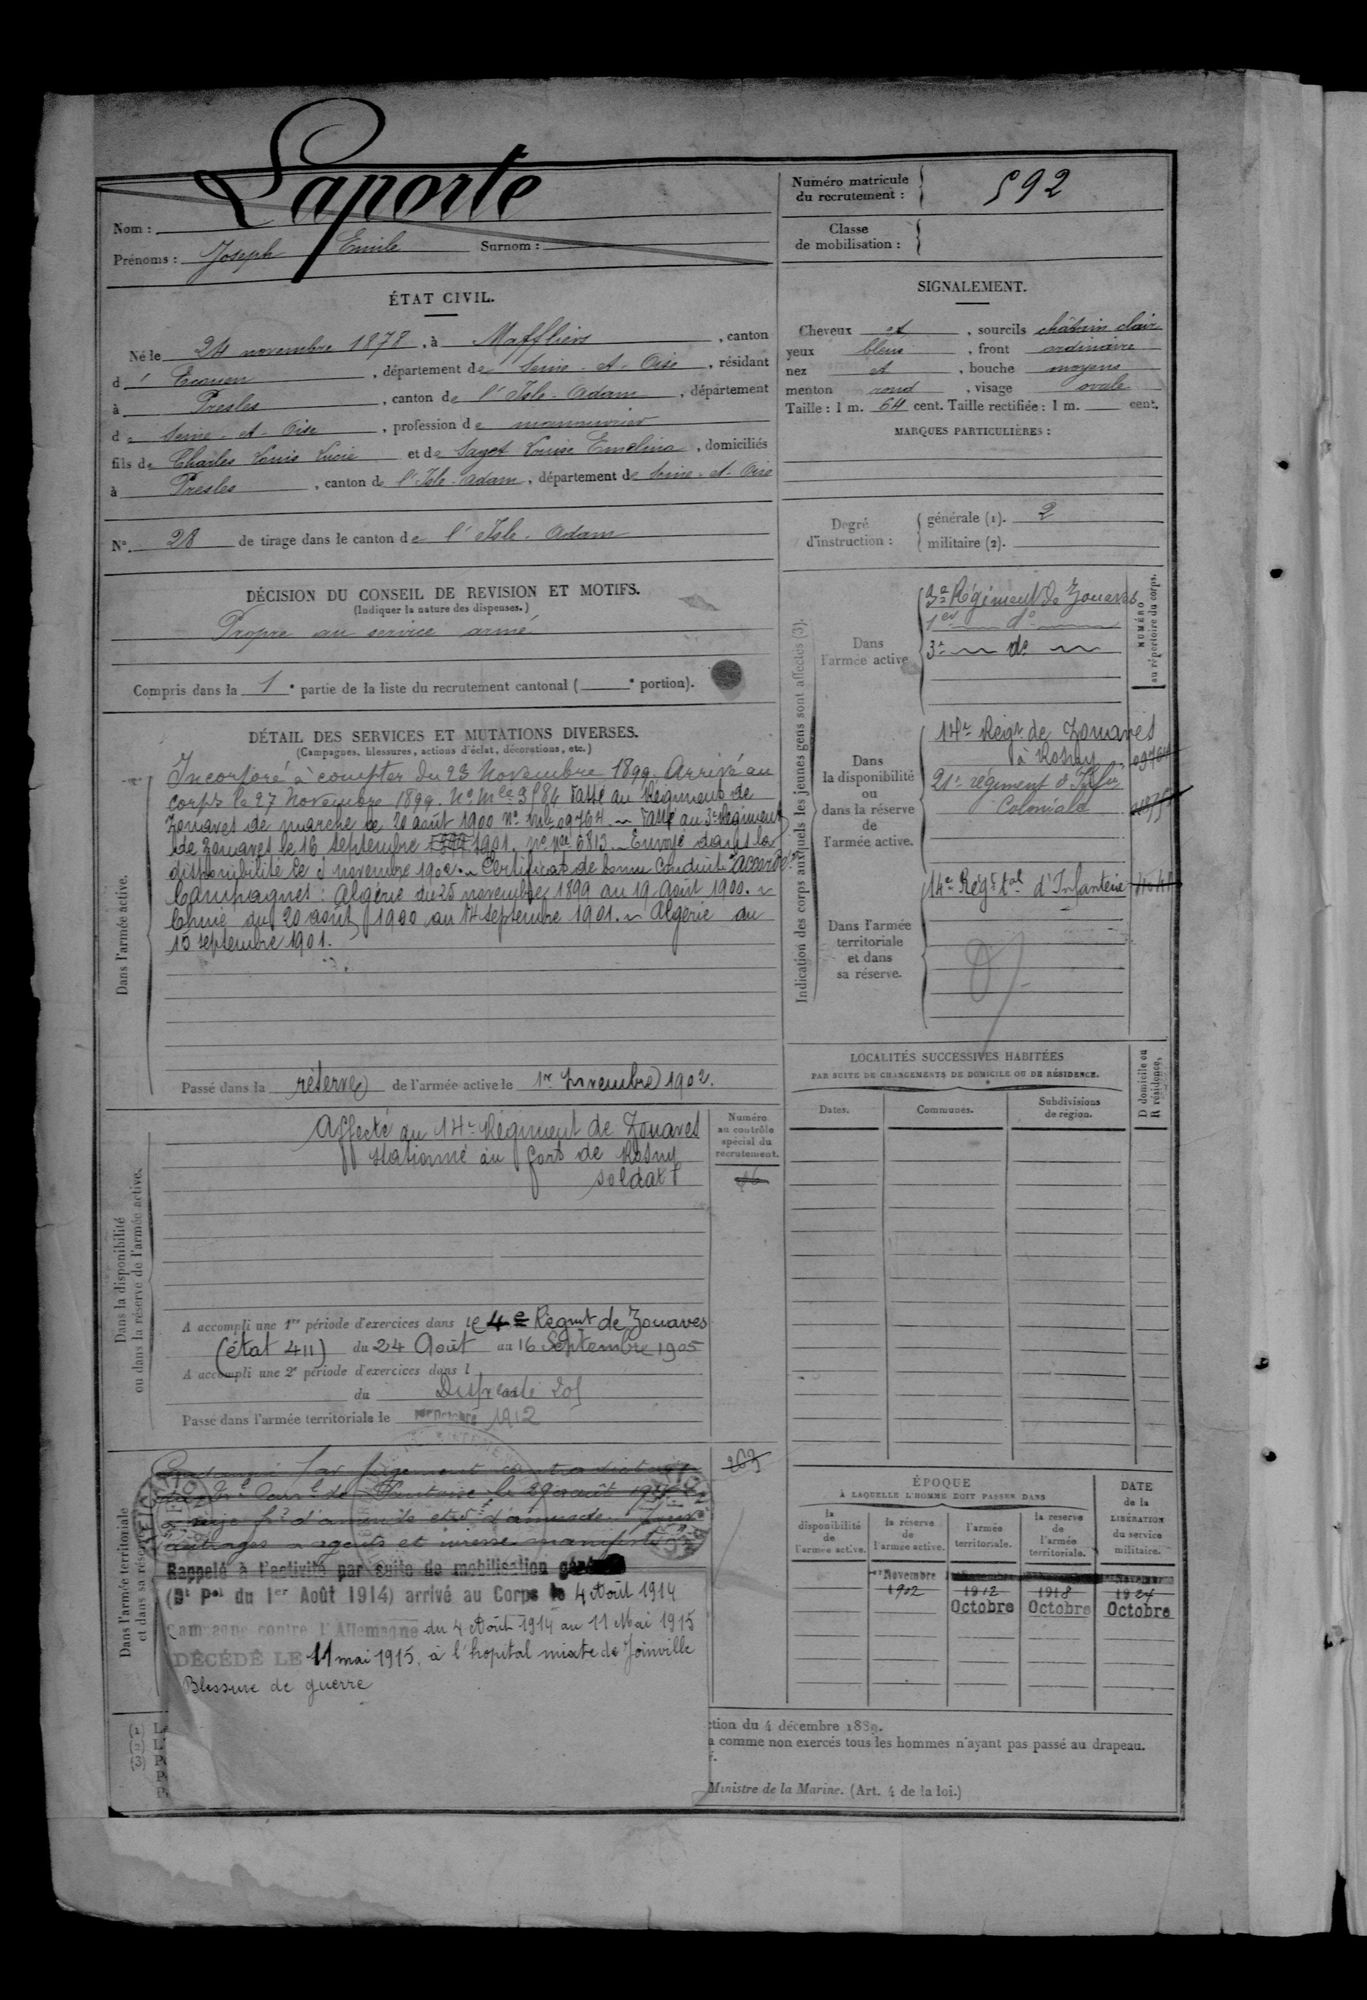 Nom : Laporte
Prénoms : Joseph Emile Surnom :
ÉTAT CIVIL.
Né le 24 novembre 1878, à Maffliers, canton
d'Ecouen, département de Seine-et-Oise, résidant
à Presles, canton de l'Isle-Adam, département
de Seine-et-Oise, profession de manouvrier
fils de Charles Louis Lucie et de Saget Louise Emelina, domiciliés
à Presles, canton de l'Isle-Adam, département de Seine-et-Oise
N° 28 de tirage dans le canton de l'Isle-Adam
DÉCISION DU CONSEIL DE REVISION ET MOTIFS.
(Indiquer la nature des dispenses.)
Propre au service armé
Compris dans la 1e partie de la liste du recrutement cantonal ( e portion).
DÉTAIL DES SERVICES ET MUTATIONS DIVERSES.
(Campagnes, blessures, actions d'éclat, décorations, etc.)
Dans l'armée active.
Incorporé à compter du 23 Novembre 1899. Arrivé au
corps le 27 Novembre 1899. No Mle 3584 Passé au Régiment de
Zouaves de marche le 20 août 1900 No Mle 09764 ~ Passé au 3e Régiment
de Zouaves le 16 Septembre 1901. No Mle 6813 ~ Envoyé dans la
disponibilité le novembre 1902. ~ Certificat de bonne Conduite "accordé".
Campagnes : Algérie du 25 novembre 1899 au 19 Août 1900. ~
Chine du 20 août 1900 au 14 Septembre 1901. ~ Algérie du
15 septembre 1901.
Passé dans la réserve de l'armée active le 1er Novembre 1902.
Dans la disponibilité
ou dans la réserve de l'armée active.
Affecté au 14e Régiment de Zouaves
stationné au fort de Rosny
soldat
A accompli une 1re période d'exercices dans le 4e Régmt de Zouaves
(état 411) du 24 Août au 16 Septembre 1905
A accompli une 2e période d'exercices dans l
du
Passé dans l'armée territoriale le 1er Octobre 1912
Numéro
au contrôle
spécial du
recrutement.
Dans l'armée territoriale
et dans sa réserve
Condamné par jugement contradictoire
Rappelé à l'activité par suite de mobilisation
(Dt Pel du 1er Août 1914) arrivé au Corps le 4 Août 1914
Campagne contre l'Allemagne du 4 Août 1914 au 11 Mai 1915
DÉCÉDÉ LE 11 mai 1915, à l'hopital mixte de Joinville
Blessure de guerre
Numéro matricule
du recrutement : 592
Classe
de mobilisation :
SIGNALEMENT.
Cheveux et, sourcils châtain clair
yeux bleus, front ordinaire
nez et, bouche moyens
menton rond, visage ovale
Taille : 1 m. 64 cent. Taille rectifiée : 1 m. cent.
MARQUES PARTICULIÈRES :
Degré
d'instruction :
générale (1). 2
militaire (2).
Indication des corps auxquels les jeunes gens sont affectés (3).
NUMÉRO
au répertoire du corps.
Dans
l'armée active
Régiment de Zouaves
1er do
3e ~ do ~
Dans
la disponibilité
ou
dans la réserve
de
l'armée active.
14e Régt de Zouaves
à Rosny 09764
21e régiment d'Infie
Coloniale
Dans l'armée
territoriale
et dans
sa réserve.
14e Régt tal d'Infanterie
LOCALITÉS SUCCESSIVES HABITÉES
PAR SUITE DE CHANGEMENTS DE DOMICILE OU DE RÉSIDENCE.
Dates. Communes. Subdivisions
de région.
D domicile ou
R résidence.
ÉPOQUE
À LAQUELLE L'HOMME DOIT PASSER DANS
la
disponibilité
de
l'armée active.
la réserve
de
l'armée active.
l'armée
territoriale.
la réserve
de
l'armée
territoriale.
DATE
de la
LIBÉRATION
du service
militaire.
1er Novembre
1902 1912 1918 1924
Octobre Octobre Octobre
(1)
(2)
(3)
ction du 4 décembre 1889.
a comme non exercés tous les hommes n'ayant pas passé au drapeau.
Ministre de la Marine. (Art. 4 de la loi.)